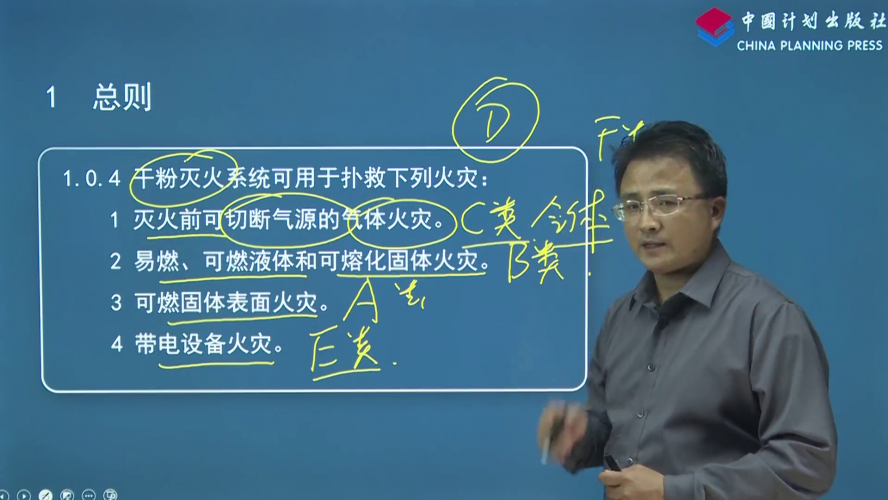 中国计划出版社
CHINA PLANNING PRESS
1 总则
D
1.0.4 干粉灭火系统可用于扑救下列火灾：
1 灭火前可切断气源的气体火灾。 C类
2 易燃、可燃液体和可熔化固体火灾。 B类.
3 可燃固体表面火灾。 A类
4 带电设备火灾。 E类.